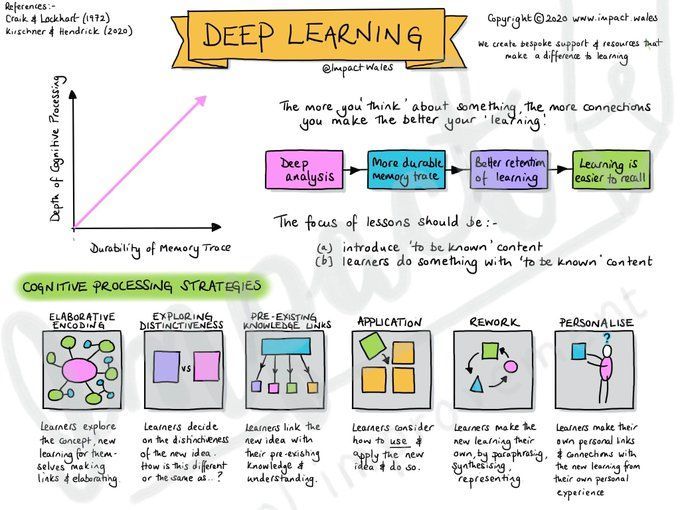 References:-
Craik & Lockhart (1972)
Kirschner & Hendrick (2020)
DEEP LEARNING
@ImpactWales
Copyright © 2020 www.impact.wales
We create bespoke support & resources that
make a difference to learning
Depth of Cognitive Processing
Durability of Memory Trace
The more you 'think' about something, the more connections
you make the better your 'learning'.
Deep
analysis
More durable
memory trace
Better retention
of learning
Learning is
easier to recall
The focus of lessons should be:-
(a) introduce 'to be known' content
(b) learners do something with 'to be known' content
COGNITIVE PROCESSING STRATEGIES
ELABORATIVE
ENCODING
Learners explore
the concept, new
learning for them-
selves making
links & elaborating.
EXPLORING
DISTINCTIVENESS
VS
Learners decide
on the distinctiveness
of the new idea.
How is this different
or the same as..?
PRE-EXISTING
KNOWLEDGE LINKS
Learners link the
new idea with
their pre-existing
knowledge &
understanding.
APPLICATION
Learners consider
how to use &
apply the new
idea & do so.
REWORK
Learners make the
new learning their
own, by paraphrasing,
synthesising,
representing
PERSONALISE
?
Learners make their
own personal links
& connections with
the new learning from
their own personal
experience